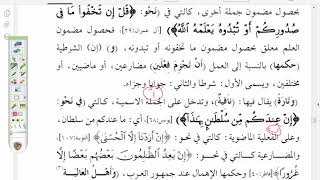 بحصول مضمون جملة أخرى، كالتي في (نَحْوِ: ﴿قُلْ إِن تُخْفُوا۟ مَا فِى
صُدُورِكُمْ أَوْ تُبْدُوهُ يَعْلَمْهُ ٱللَّهُ﴾) [آل عمران: ٢٩]، فحصول مضمون
العلم معلق بحصول مضمون ما تخفونه أو تبدونه، و(إن) الشرطية
(حكمها) بالنسبة إلى العمل (أَنْ تَجْزِمَ فِعْلَيْنِ) مضارعين، أو ماضيين، أو
مختلفين، ويسمى الأول: شرطا والثاني: جوابا وجزاء.
(وَتَارَةً) يقال فيها: (نَافِيَةٌ)، وتدخل على الجملة الاسمية، كالتي في (نَحْوِ:
﴿إِنْ عِندَكُم مِّن سُلْطَٰنٍۭ بِهَٰذَآ﴾) [يونس: ٦٨]، أي: ما عندكم من سلطان،
وعلى الفعلية الماضوية: كالتي في نحو: ﴿إِنْ أَرَدْنَآ إِلَّا ٱلْحُسْنَىٰ﴾ [التوبة: ١٠٧]،
والمضارعية كالتي في نحو: ﴿إِن يَعِدُ ٱلظَّٰلِمُونَ بَعْضُهُم بَعْضًا إِلَّا
غُرُورًا﴾ وحكمها الإهمال عند جمهور العرب، (وَأَهْلُ الْعَالِيَةِ